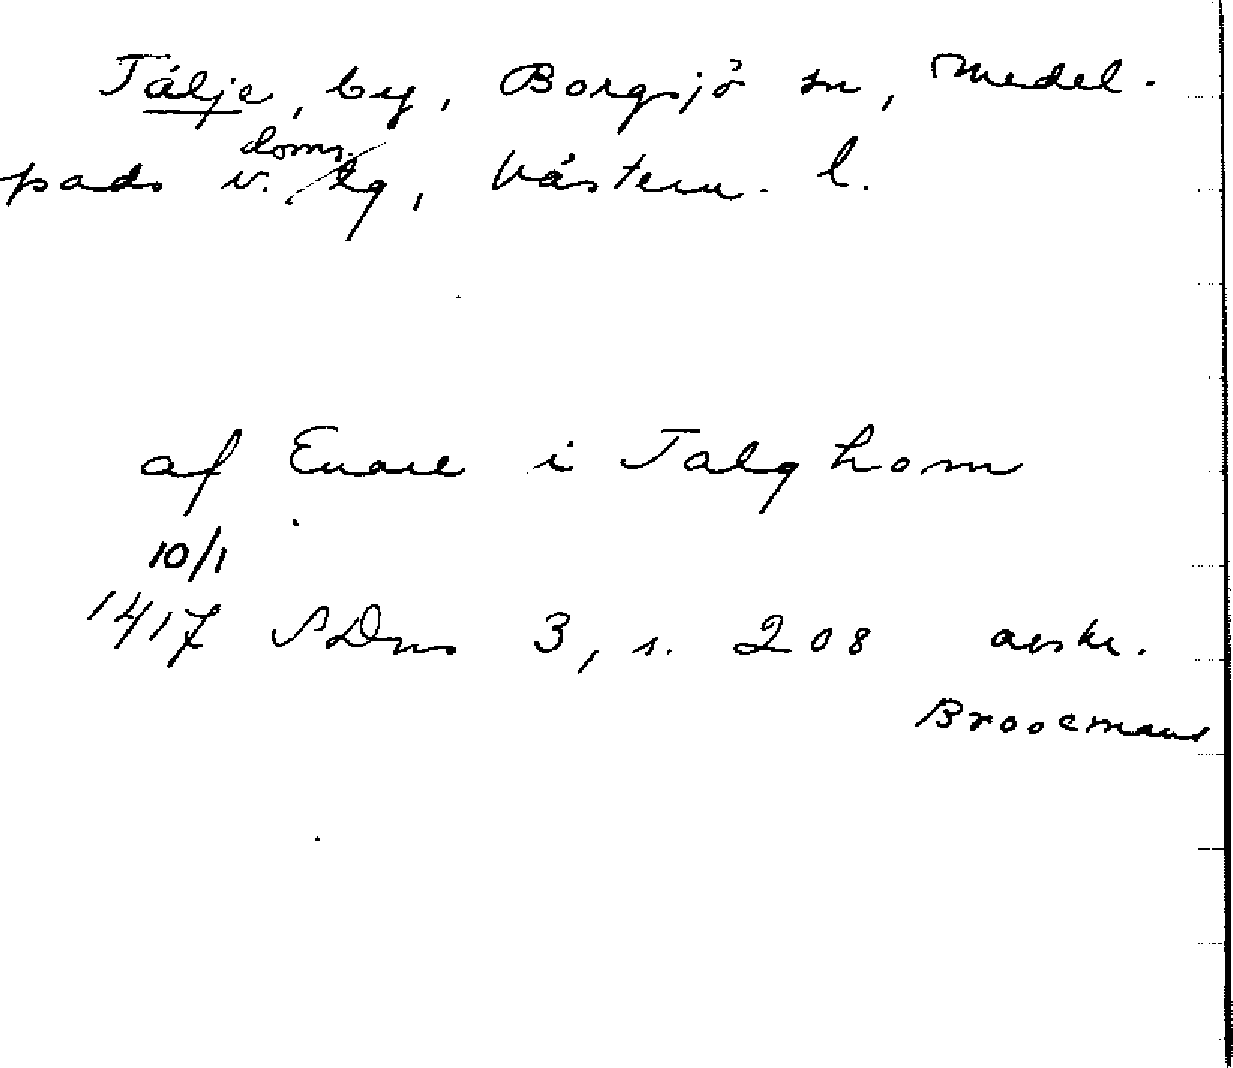 Tälje, by, Borgsjö sn, Medel-
pads v. doms. lg, Västern. l.
af Enare i Talghom
10/1
1417 SDns 3, s. 208 avskr.
Broocmans